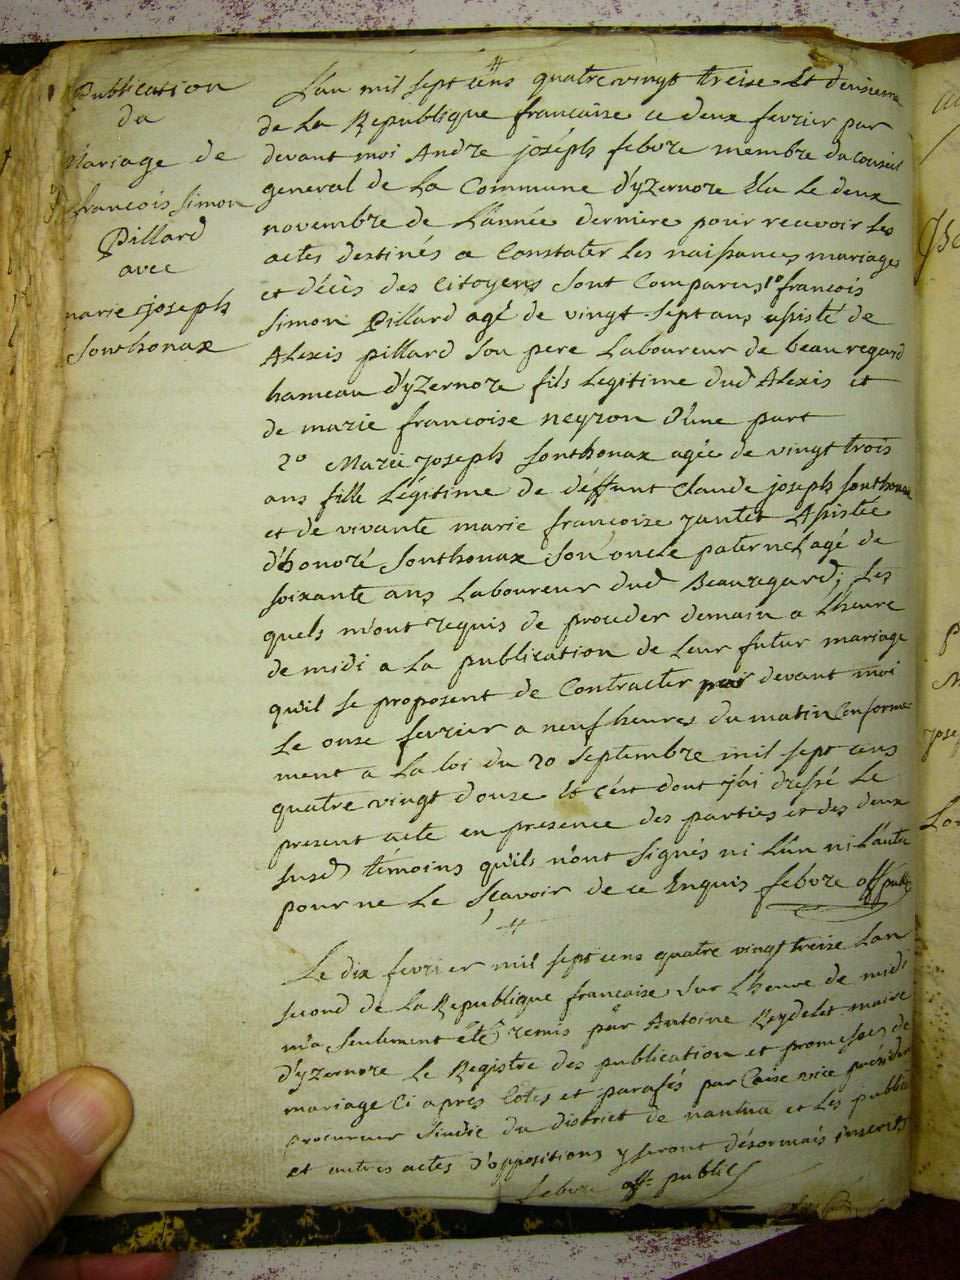 Publication
du
Mariage de
francois simon
Pillard
avec
marie joseph
Sonthonax
L'an mil sept cens quatre vingt treise Et deusieme
de La Republique francaise ce deux fevrier par
devant moi André joséph febvre membre du conseil
general de La Commune d'yZernore Elu Le deux
novembre de L'année derniere pour recevoir Les
actes destinés a Constater Les naissances mariages
et décès des Citoyens sont Comparus 1º francois
simon Pillard agé de vingt-sept ans assisté de
Alexis pillard son pere Laboureur de beauregard
hameau d'yZernore fils Legitime dud Alexis et
de marie francoise neyron d'une part
2º Marie joseph sonthonax agée de vingt trois
ans fille Légitime de déffunt Claude joseph sonthonax
et de vivante marie francoise jantet Assistée
d'honoré Sonthonax son oncle paternel agé de
soixante ans Laboureur dud Beauregard; Les
quels m'ont requis de proceder demain a L'heure
de midi a La publication de Leur futur mariage
qu'il se proposent de Contracter par devant moi
Le onse fevrier a neuf heures du matin Conforme
ment a La Loi du 20 septembre mil sept cens
quatre vingt douse Et c'est dont j'ai dressé Le
present acte en presence des parties et des deux
susd témoins qu'ils n'ont signés ni L'un ni L'autre
pour ne Le scavoir de ce Enquis febvre off public
Le dix fevrier mil sept cens quatre vingt treize L'an
second de La Republique francaise sur L'heure de midi
m'a seulement eté remis par Antoine Reydelet maire
d'yZernore Le Registre des publication et promesses de
mariage Ci apres Cotés et parafés par Caire vice président
procureur sindic du district de nantua et Les public
et autres actes d'oppositions y seront désormais inscrits
febvre off. public